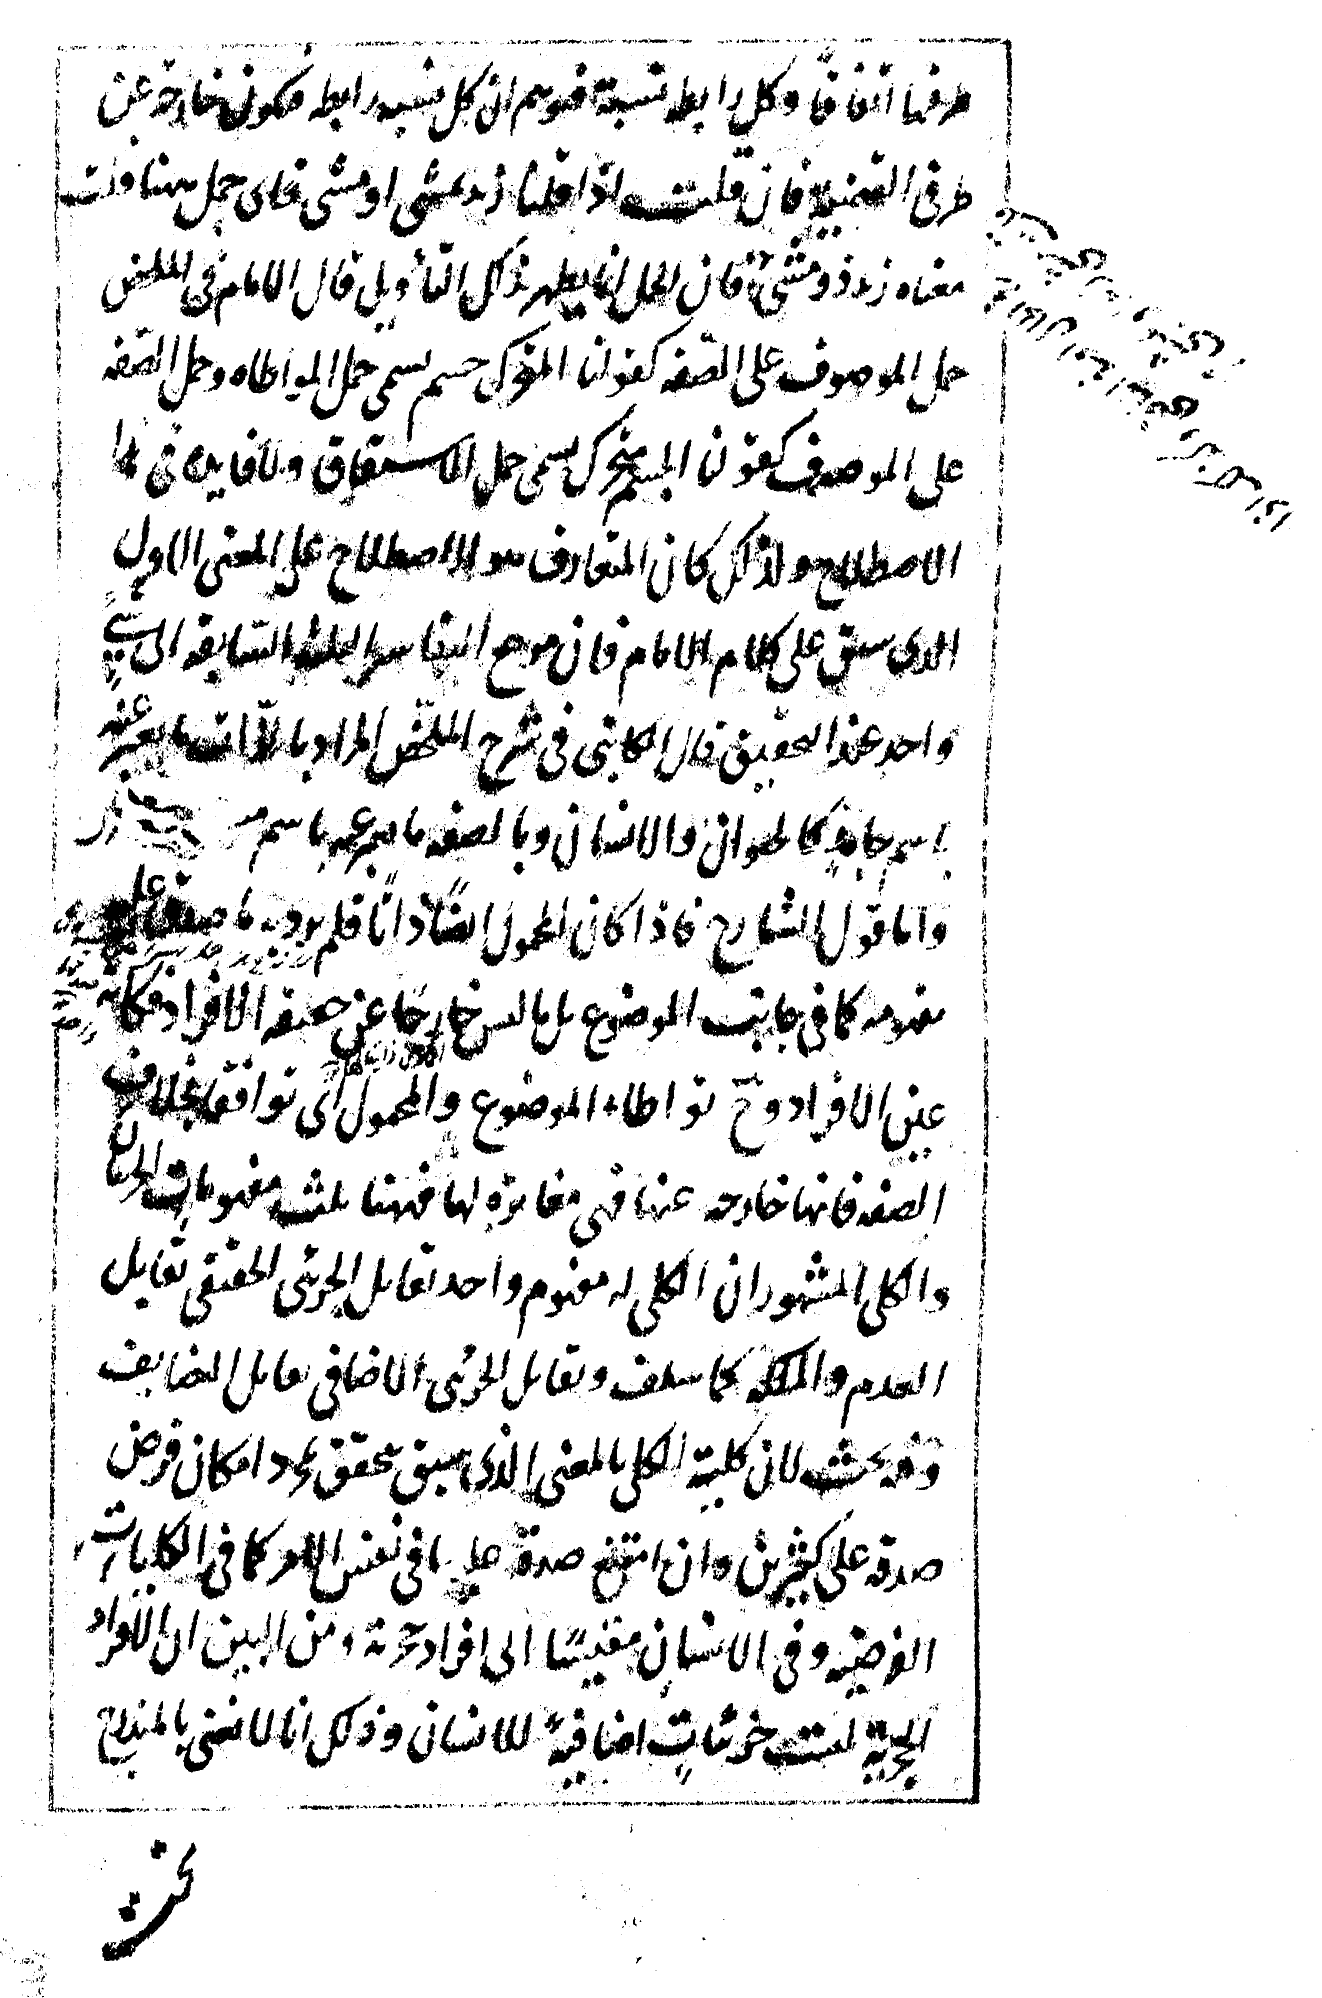 طرفيها اتفاقا وكل رابطه نسبة فتوهم ان كل نسبه رابطه فيكون خارجه عن
طرفى القضية فان قلت اذا قلنا زيد يمشى او مشى فاى حمل هنا قلت
معناه زيد ذو مشى فان الحمل انما يظهر بذلك التأويل قال الامام فى الملخص
حمل الموصوف على الصفه كقولنا المتحرك جسم يسمى حمل المواطاه وحمل الصفه
على الموصوف كقولنا الجسم متحرك يسمى حمل الاشتقاق ولا فايده فى هذا
الاصطلاح ولذلك كان المتعارف هو الاصطلاح على المعنى الاول
الذى سبق على كلام الامام فان مرجع التفاسير الثلثه السابقه الى شىء
واحد عند التحقيق قال الكاتبى فى شرح الملخص المراد بالذات ما يعبر عنه
باسم جامد كالحيوان والانسان وبالصفه ما يعبر عنه باسم
واما قول الشارح فاذا كان المحمول ايضا ذاتا فلم يرد به ما صدق عليه
مفهومه كما فى جانب الموضوع بل ما ليس خارجا عن حقيقه الافراد فكانه
عين الافراد وح تواطاء الموضوع والمحمول اى توافقا بخلاف
الصفه فانها خارجه عنها فهى مغايرة لها فههنا ثلث مفهومات الجزئى
والكلى المشهور ان الكلى له مفهوم واحد تقابل الجزئى الحقيقى تقابل
العدم والملكه كما سلف وتقابل الجزئى الاضافى تقابل التضايف
وفيه بحث لان كلية الكلى بالمعنى الذى سبق تحقق بمجرد امكان فرض
صدقه على كثيرين وان امتنع صدقه عليها فى نفس الامر كما فى الكليات
الفرضية وفى الانسان مقيسا الى افراد حجرية ومن البين ان الافراد
الحجرية ليست جزئيات اضافية للانسان وذلك انا لا نعنى بالمندرج
تحت